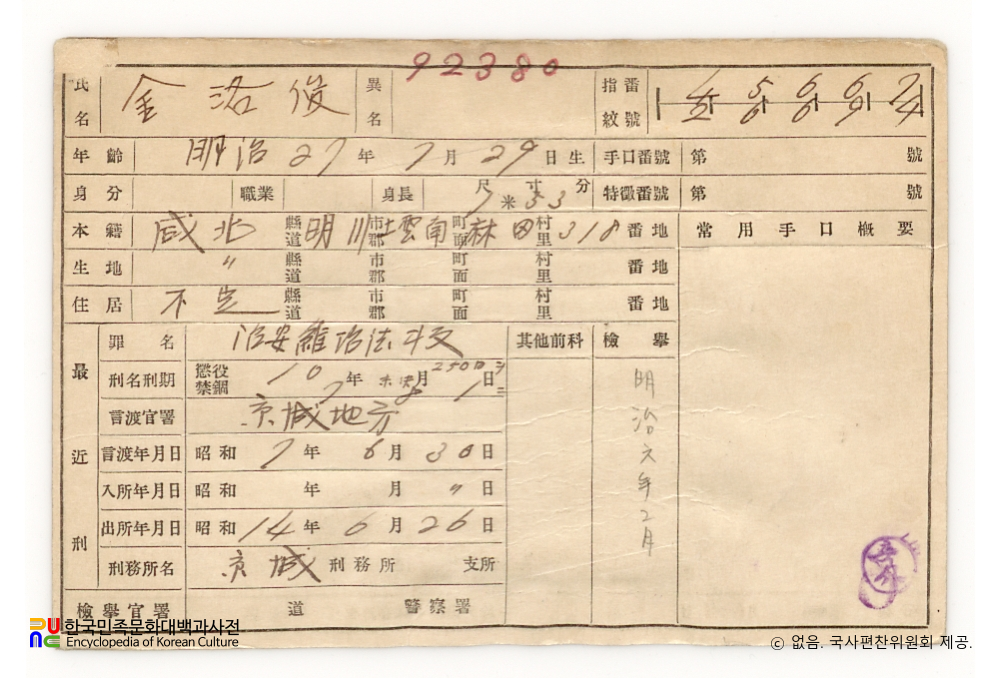 92380
氏名 金洛俊 異名 指紋番號
年齡 明治27年7月29日生 手口番號 第 號
身分 職業 身長 尺寸分 米53 特徵番號 第 號
本籍 咸北 縣道 明川 市郡 上雲南 町面 麻田 村里 318 番地 常用手口槪要
生地 〃 縣道 市郡 町面 村里 番地
住居 不定 縣道 市郡 町面 村里 番地
最近刑
罪名 治安維持法 其他前科 檢擧
刑名刑期 懲役 禁錮 10年 未決 月 250日 日
言渡官署 京城地方
言渡年月日 昭和7年6月30日
入所年月日 昭和 年 月 〃日
出所年月日 昭和14年6月26日
刑務所名 京城 刑務所 支所
檢擧官署 道 警察署
明治六年2月
한국민족문화대백과사전
Encyclopedia of Korean Culture
© 없음. 국사편찬위원회 제공.